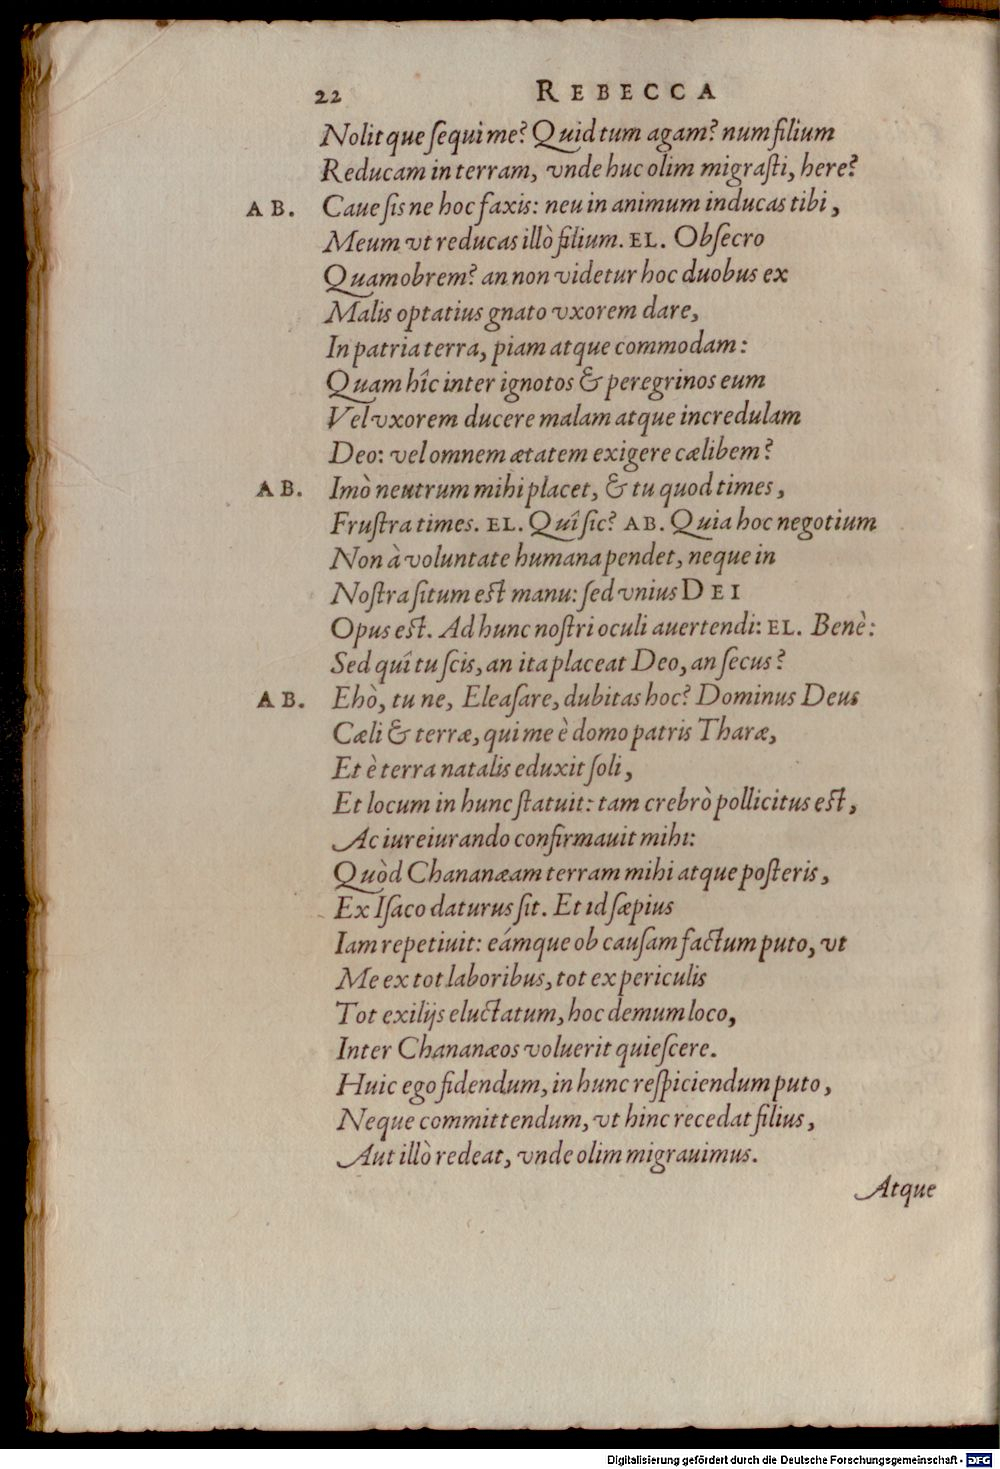 22 REBECCA
Nolitque ſequi me? Quid tum agam? num filium
Reducam in terram, vnde huc olim migraſti, here?
AB. Caue ſis ne hoc faxis: neu in animum inducas tibi,
Meum vt reducas illò filium. EL. Obſecro
Quamobrem? an non videtur hoc duobus ex
Malis optatius gnato vxorem dare,
In patria terra, piam atque commodam:
Quam hîc inter ignotos & peregrinos eum
Vel vxorem ducere malam atque incredulam
Deo: vel omnem ætatem exigere cælibem?
AB. Imò neutrum mihi placet, & tu quod times,
Fruſtra times. EL. Quî ſic? AB. Quia hoc negotium
Non à voluntate humana pendet, neque in
Noſtra ſitum est manu: ſed vnius DEI
Opus est. Ad hunc noſtri oculi auertendi: EL. Benè:
Sed quî tu ſcis, an ita placeat Deo, an ſecus?
AB. Ehò, tu ne, Eleaſare, dubitas hoc? Dominus Deus
Cæli & terræ, qui me è domo patris Tharæ,
Et è terra natalis eduxit ſoli,
Et locum in hunc ſtatuit: tam crebrò pollicitus est,
Ac iureiurando confirmauit mihi:
Quòd Chananæam terram mihi atque poſteris,
Ex Iſaco daturus ſit. Et id ſæpius
Iam repetiuit: eámque ob cauſam factum puto, vt
Me ex tot laboribus, tot ex periculis
Tot exilijs eluctatum, hoc demum loco,
Inter Chananæos voluerit quieſcere.
Huic ego fidendum, in hunc reſpiciendum puto,
Neque committendum, vt hinc recedat filius,
Aut illò redeat, vnde olim migrauimus.
Atque
Digitalisierung gefördert durch die Deutsche Forschungsgemeinschaft - DFG